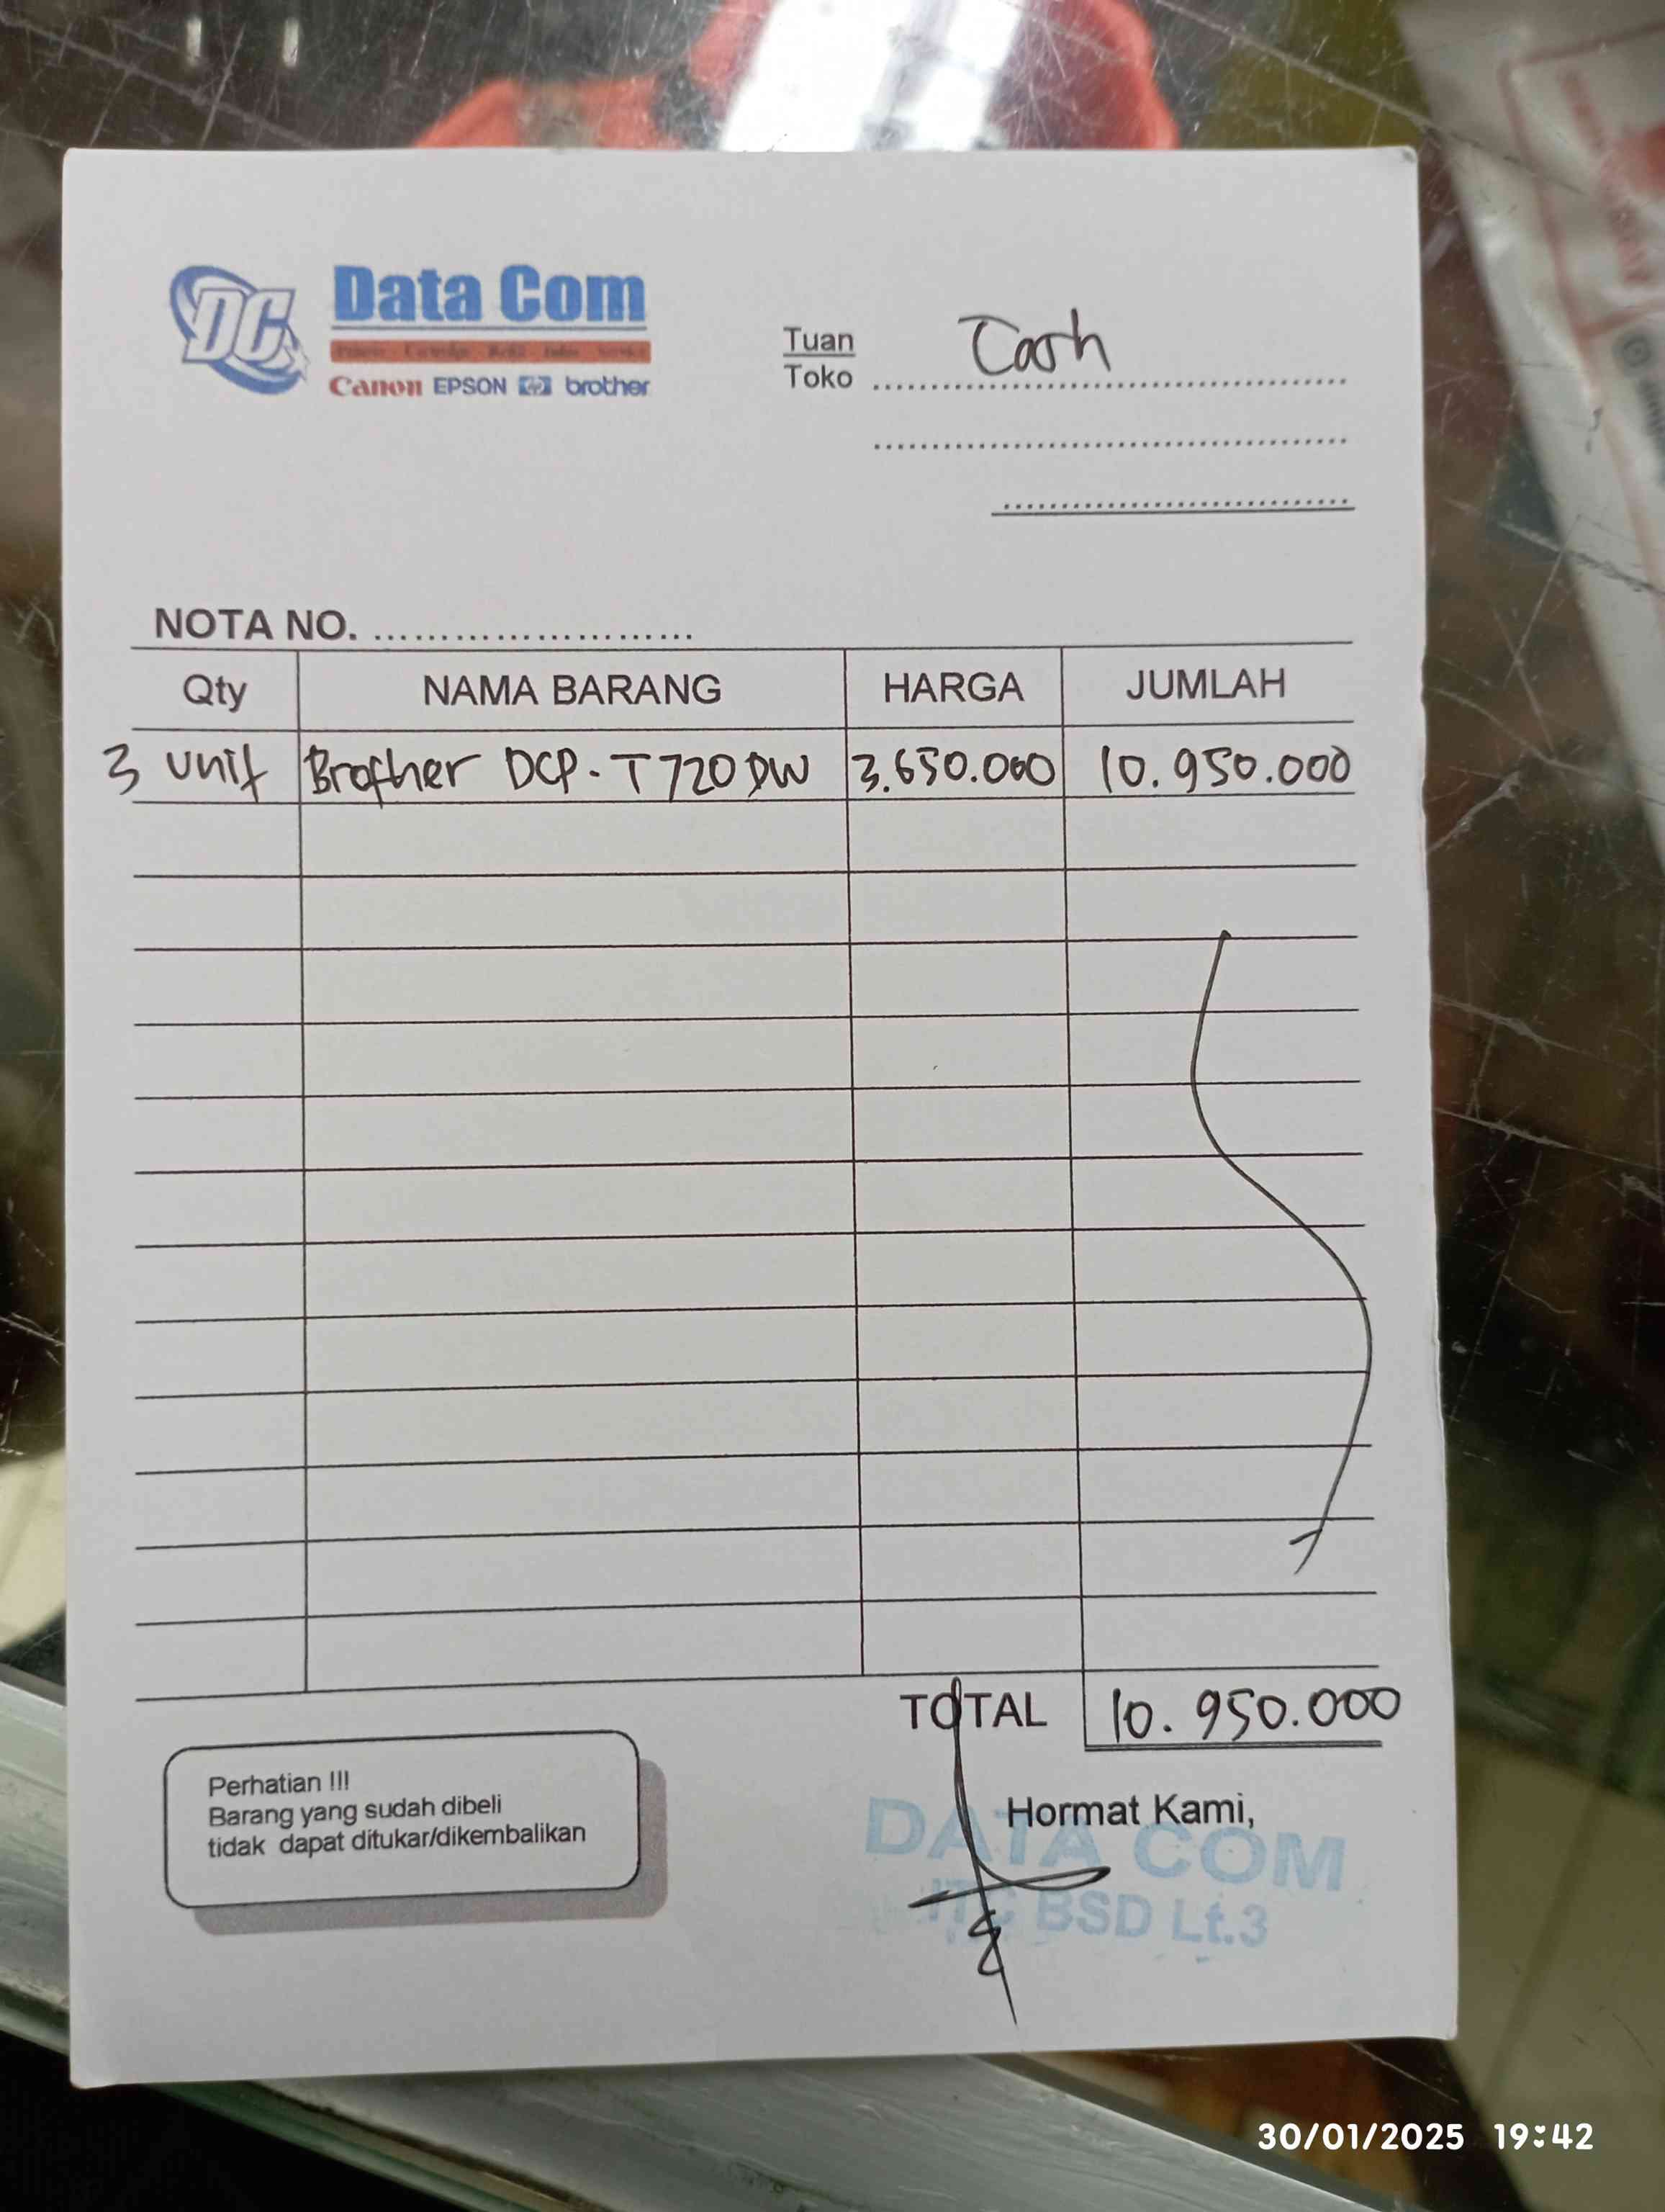 DC
Data Com
Canon EPSON hp brother
Tuan Cash
Toko
NOTA NO.
Qty NAMA BARANG HARGA JUMLAH
3 unit Brother DCP-T720DW 3.650.000 10.950.000
TOTAL 10.950.000
Perhatian !!!
Barang yang sudah dibeli
tidak dapat ditukar/dikembalikan
Hormat Kami,
DATA COM
ITC BSD Lt.3
30/01/2025 19:42